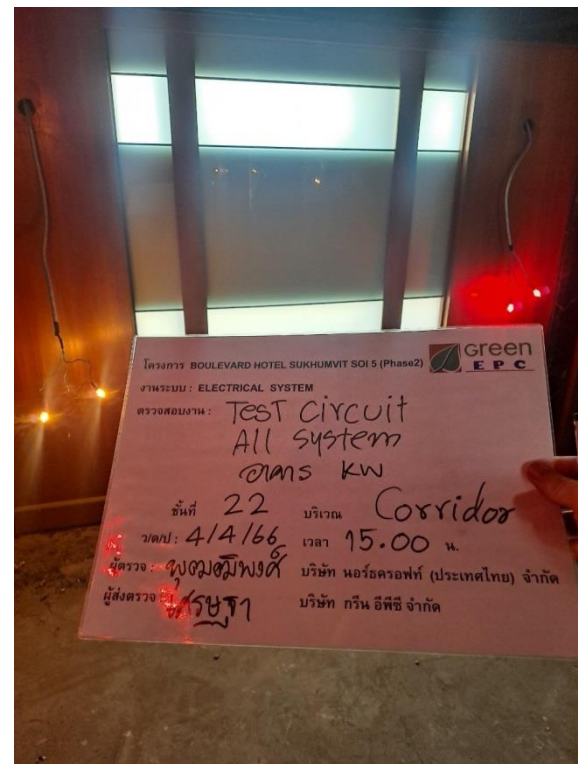 โครงการ BOULEVARD HOTEL SUKHUMVIT SOI 5 (Phase2) Green EPC
งานระบบ : ELECTRICAL SYSTEM
ตรวจสอบงาน : TEST CIRCUIT
All system
อาคาร KW
ชั้นที่ 22 บริเวณ Corridor
ว/ด/ป : 4/4/66 เวลา 15.00 น.
ผู้ตรวจ : บริษัท นอร์ธครอฟท์ (ประเทศไทย) จำกัด
ผู้ส่งตรวจ : เศรษฐา บริษัท กรีน อีพีซี จำกัด